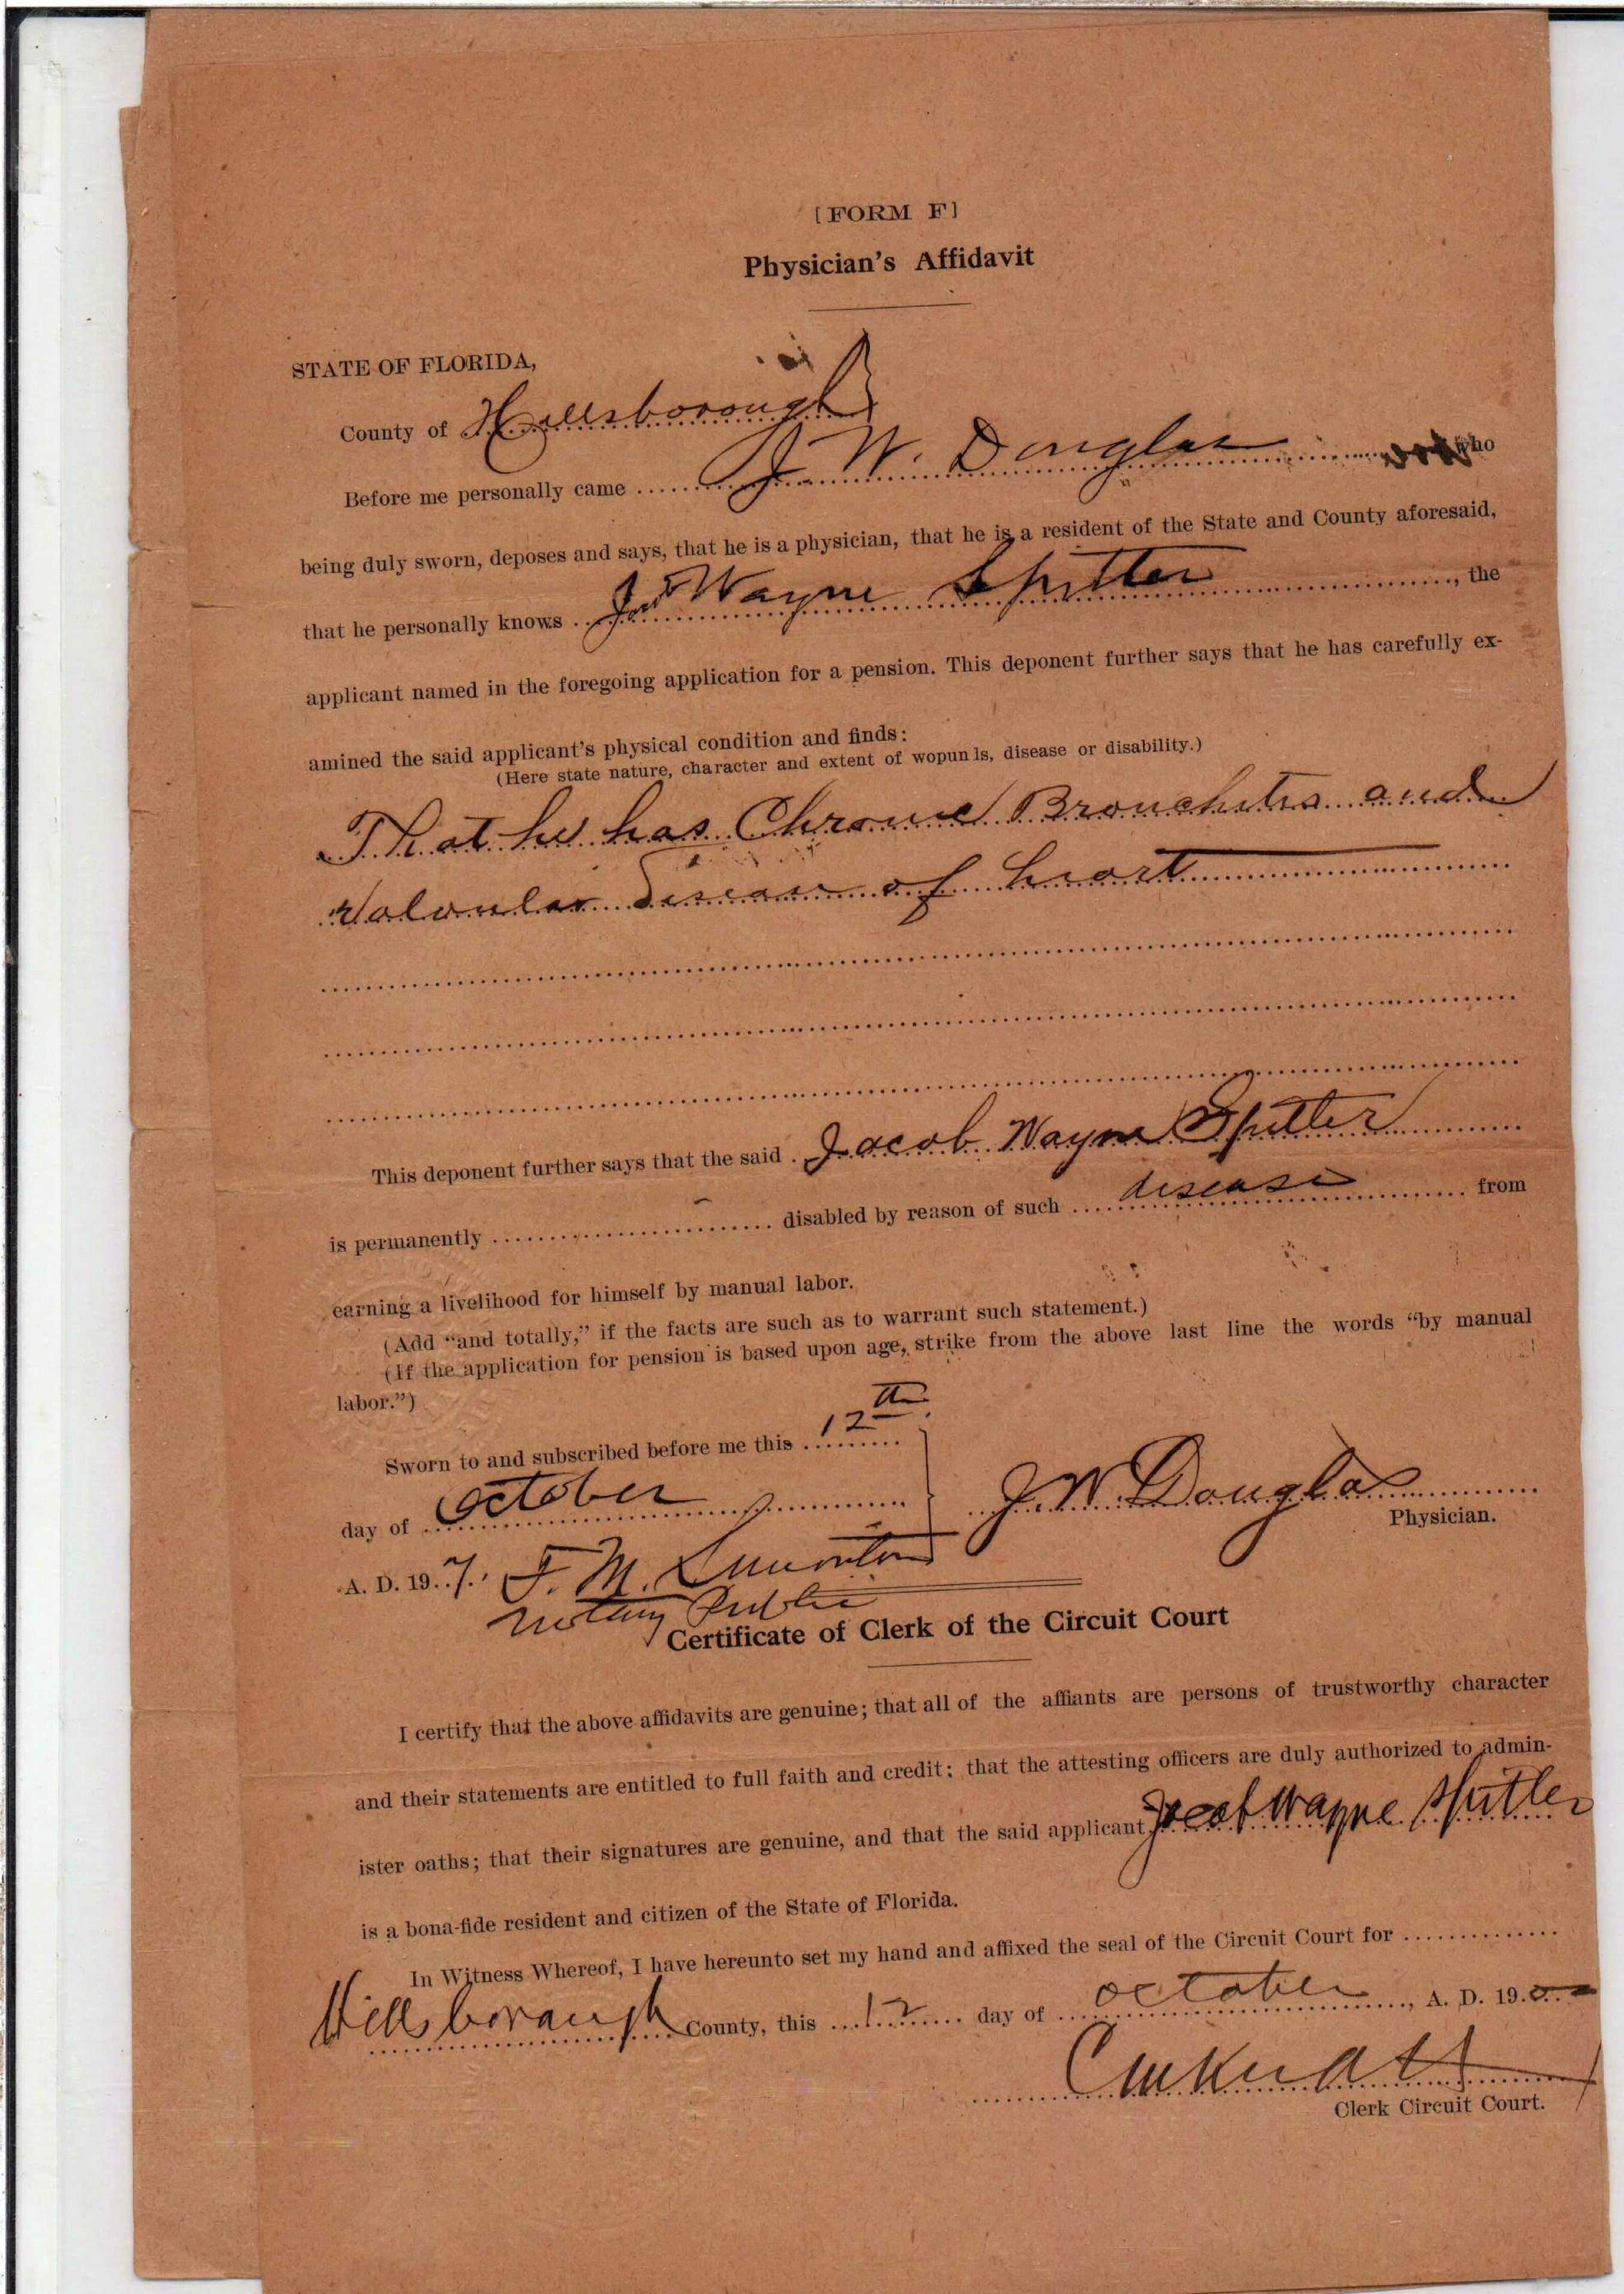 [FORM F]
Physician's Affidavit
STATE OF FLORIDA,
County of Hillsborough
Before me personally came J. W. Douglas who
being duly sworn, deposes and says, that he is a physician, that he is a resident of the State and County aforesaid,
that he personally knows Wayne Spitler, the
applicant named in the foregoing application for a pension. This deponent further says that he has carefully ex-
amined the said applicant's physical condition and finds:
(Here state nature, character and extent of wopun ls, disease or disability.)
That he has Chronic Bronchitis and
Valvular Disease of heart
This deponent further says that the said Jacob Wayne Spitler
is permanently disabled by reason of such disease from
earning a livelihood for himself by manual labor.
(Add "and totally," if the facts are such as to warrant such statement.)
(If the application for pension is based upon age, strike from the above last line the words "by manual
labor.")
Sworn to and subscribed before me this 12th
day of October
J. W. Douglas
Physician.
A. D. 19 7. F. M. Simonton
Notary Public
Certificate of Clerk of the Circuit Court
I certify that the above affidavits are genuine; that all of the affiants are persons of trustworthy character
and their statements are entitled to full faith and credit; that the attesting officers are duly authorized to admin-
ister oaths; that their signatures are genuine, and that the said applicant Jacob Wayne Spitler
is a bona-fide resident and citizen of the State of Florida.
In Witness Whereof, I have hereunto set my hand and affixed the seal of the Circuit Court for
Hillsborough County, this 12 day of October, A. D. 19
Clerk Circuit Court.